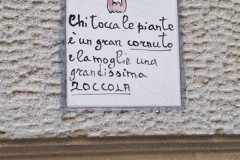 Chi tocca le piante
è un gran cornuto
e la moglie una
grandissima
ZOCCOLA